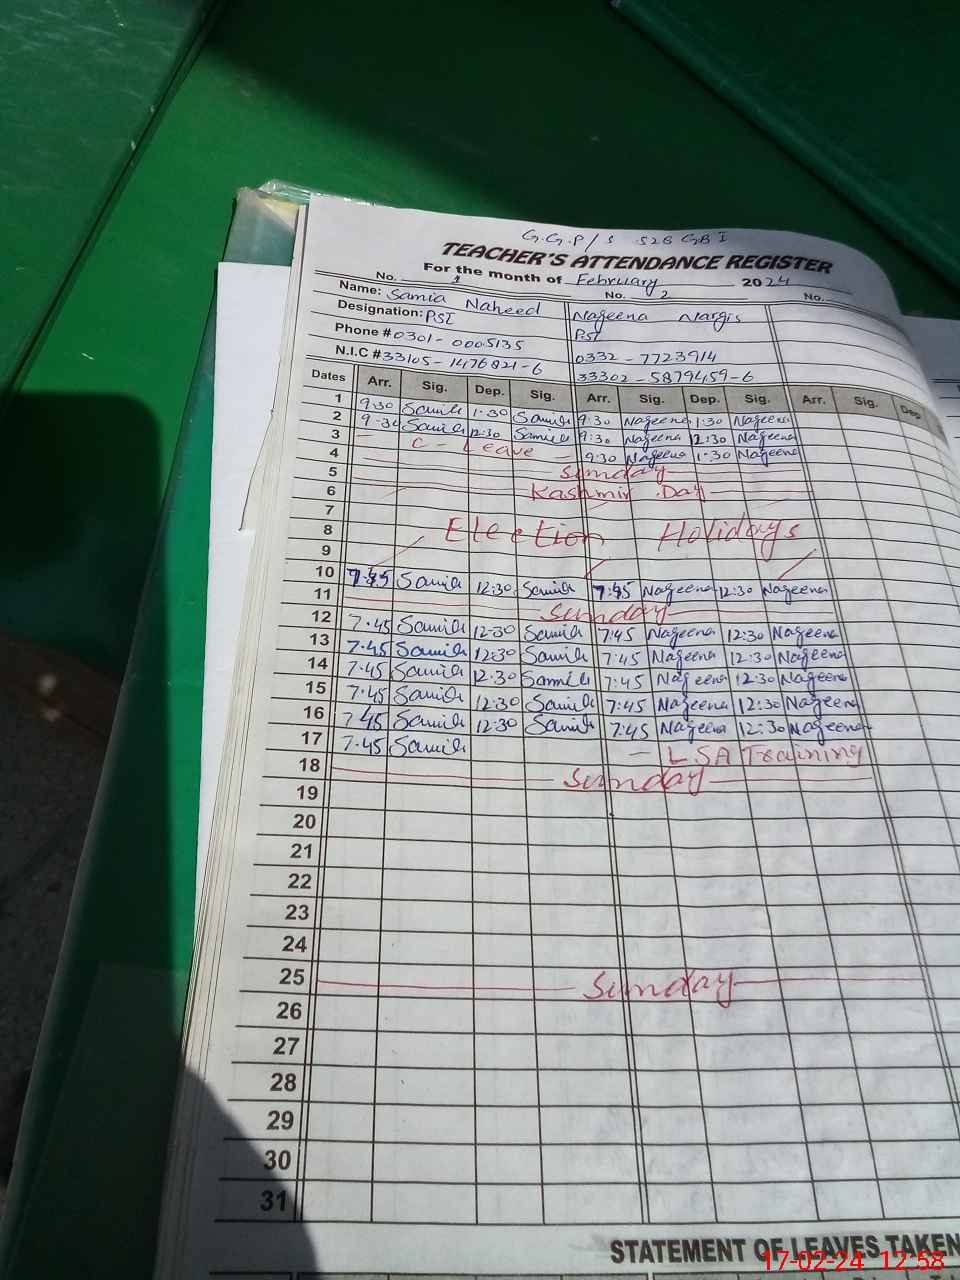 G.G.P/S 526 GB I
TEACHER'S ATTENDANCE REGISTER
For the month of February 2024
No. 1 No. 2 No.
Name: Samia Naheed Nageena Nargis
Designation: PST PST
Phone # 0301-0005135 0332-7723914
N.I.C # 33105-1476821-6 33302-5879459-6
Dates Arr. Sig. Dep. Sig. Arr. Sig. Dep. Sig. Arr. Sig. Dep
1 9:30 Samia 1:30 Samia 9:30 Nageena 1:30 Nageena
2 9:30 Samia 12:30 Samia 9:30 Nageena 12:30 Nageena
3 C-Leave 9:30 Nageena 1:30 Nageena
4 Sunday
5 Kashmir Day
6
7 Election Holidays
8
9
10 7:45 Samia 12:30 Samia 7:45 Nageena 12:30 Nageena
11 Sunday
12 7.45 Samia 12:30 Samia 7:45 Nageena 12:30 Nageena
13 7.45 Samia 12:30 Samia 7:45 Nageena 12:30 Nageena
14 7.45 Samia 12:30 Samia 7:45 Nageena 12:30 Nageena
15 7.45 Samia 12:30 Samia 7:45 Nageena 12:30 Nageena
16 7.45 Samia 12:30 Samia 7:45 Nageena 12:30 Nageena
17 7.45 Samia – LSA Training
18 Sunday
19
20
21
22
23
24
25 Sunday
26
27
28
29
30
31
STATEMENT OF LEAVES TAKEN
17-02-24 12:58